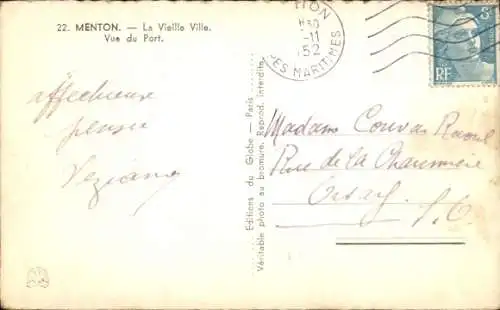 22. MENTON. — La Vieille Ville.
Vue du Port.
affectueuse
pensée
Editions du Globe — Paris
Véritable photo au bromure. Reprod. interdite.
TION
30
-11
52
PES MARITIMES
5
RF
Madame Raoul
Rue de la Chaumière
Orsay
S.O.